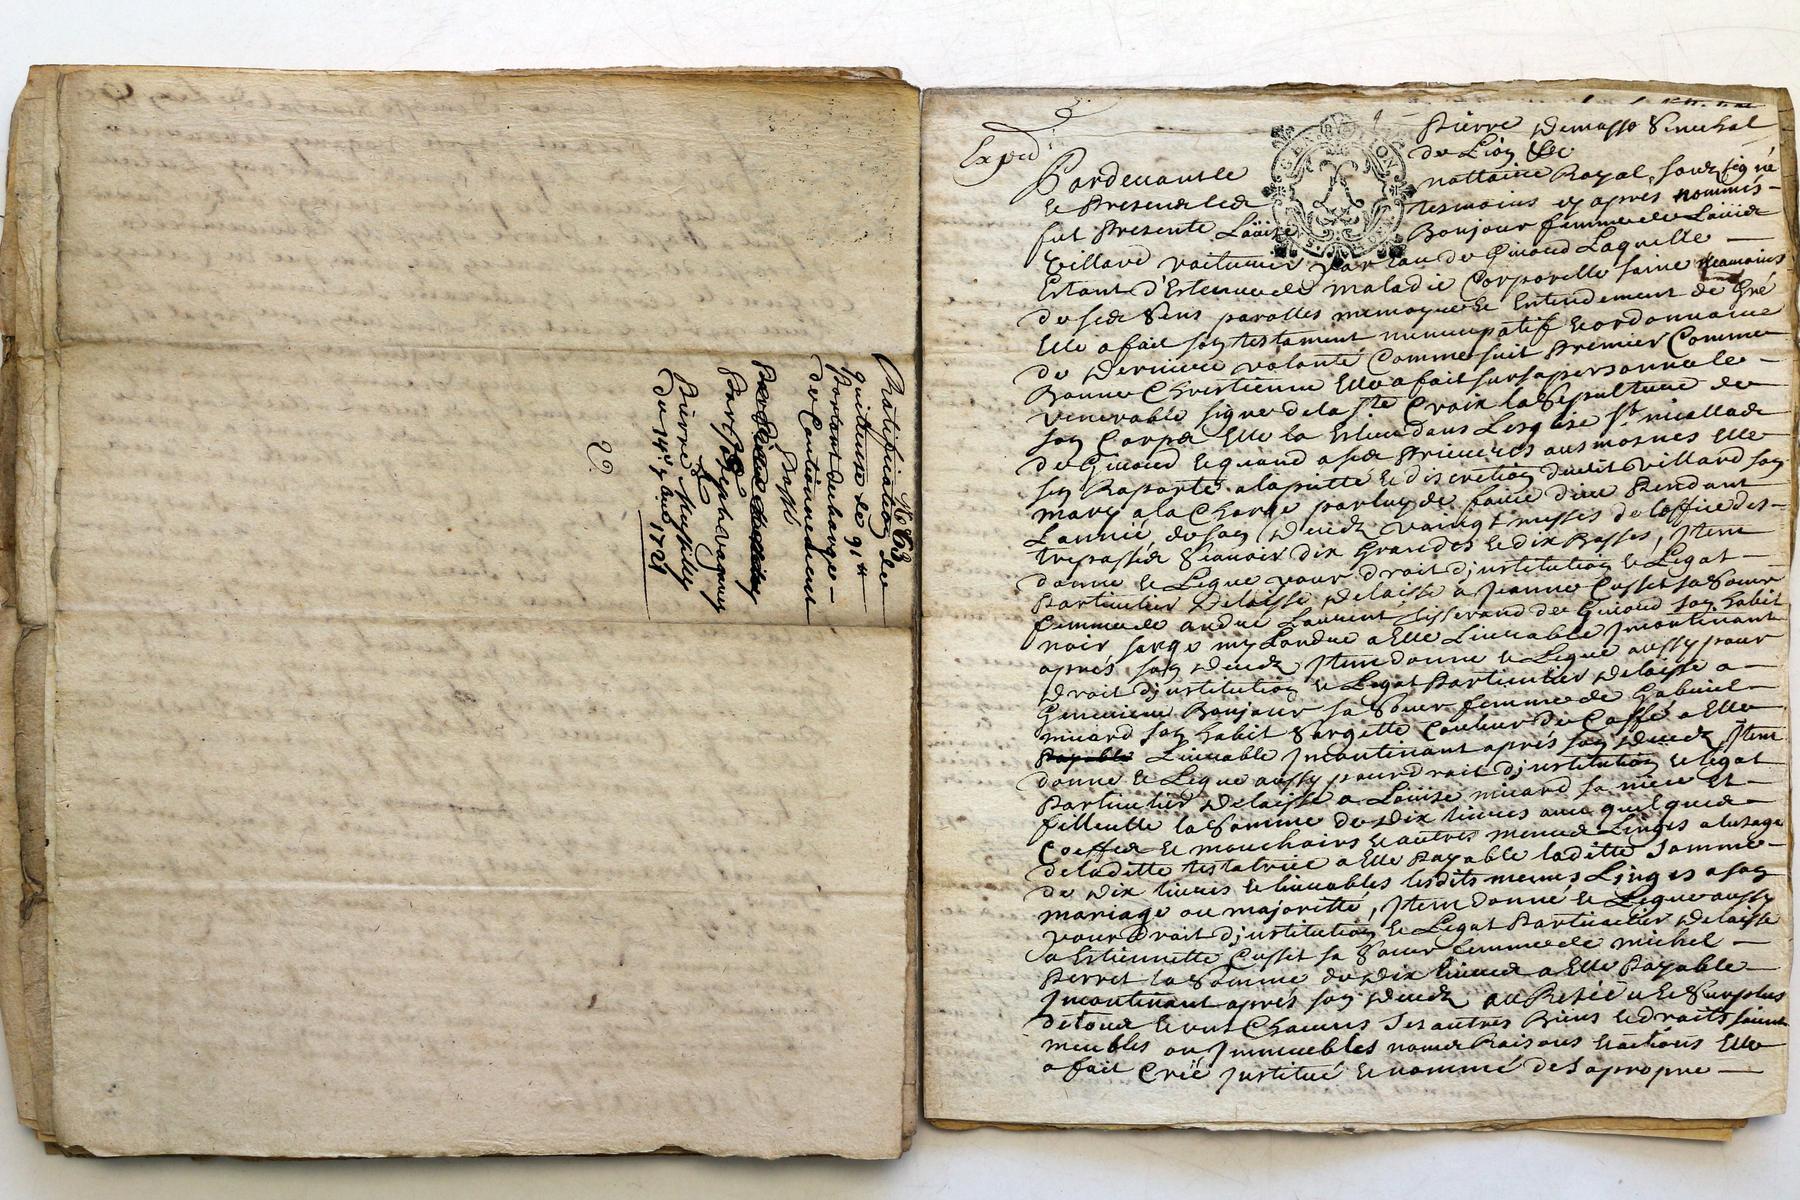 N° 63
Ratification de
quittance de 91 ₶
Portant decharge
de Cautionnement
Passé
Par Joseph vaguey
A
Pierre
Du 14e Janr 1729
Expéd
Pierre Demasso Senechal
de Lion &c
Pardevant le nottaire Royal souzsigné
et Presence des tesmoins cy après nommés
fut Presente Loüise Bonjour femme de Loüis
Villard voiturier par eau de Giuord Laquelle
Estant d'Estenue de maladie Corporelle saine neamoins
de ses Sens parolles memoyre et Entendement de Gré
Elle a fait son testament nuncupatif et ordonnance
de derniere volonté Comme suit Premier Comme
Bonne Chrestienne Elle a fait sur sa personne le
venerable signe de la Ste Croix la Sepulture de
son Corps Elle la Eslue dans Lesglise St nicollas
de Giuord et quand a ses Prieres aumosnes Elle
sen Raporte a la et discretion dudit villard son
mary a la Charge par luy de faire dire Pendant
Lannée de son Decedz vaingt messes de Loffice des
trepassés Scauoir dix Grandes et dix Basses, Item
donne et Legue pour droit d'institution et Legat
Particulier Delaisse a Jeanne Cusset sa Sœur
femme de andré Laurent tisserand de Giuord son habit
noir sarge a Elle Liurable Incontinant
après son Decedz Item donne et Legue aussy pour
droit d'institution et Legat Particulier Delaisse a
Geneuieue Bonjour sa Sœur femme de Gabriel
micard son habit Sargette Couleur de Caffé a Elle
Liurable Incontinant après son Decedz, Item
donne et Legue aussy pour droit d'institution et legat
Particulier Delaisse a Loüise micard sa niece et
filleulle la Somme de Dix liures auec quelques
Coeffes et mouchoirs et autres menus Linges a lusage
de laditte testatrice a Elle Payable laditte Somme
de Dix liures et liurables lesdits menus Linges a son
mariage ou majoritté, Item donne et Legue aussy
pour Droit d'institution et Legat Particulier Delaisse
a Estiennette Cusset sa Sœur femme de michel
Perret la Somme de Dix liures a Elle Payable
Incontinant après son Decedz au Residu et Surplus
de tous et uns Chacuns Ses autres Biens et droits soient
meubles ou Immeubles noms Raisons et actions Elle
a fait Créé Institué et nommé de Sa propre